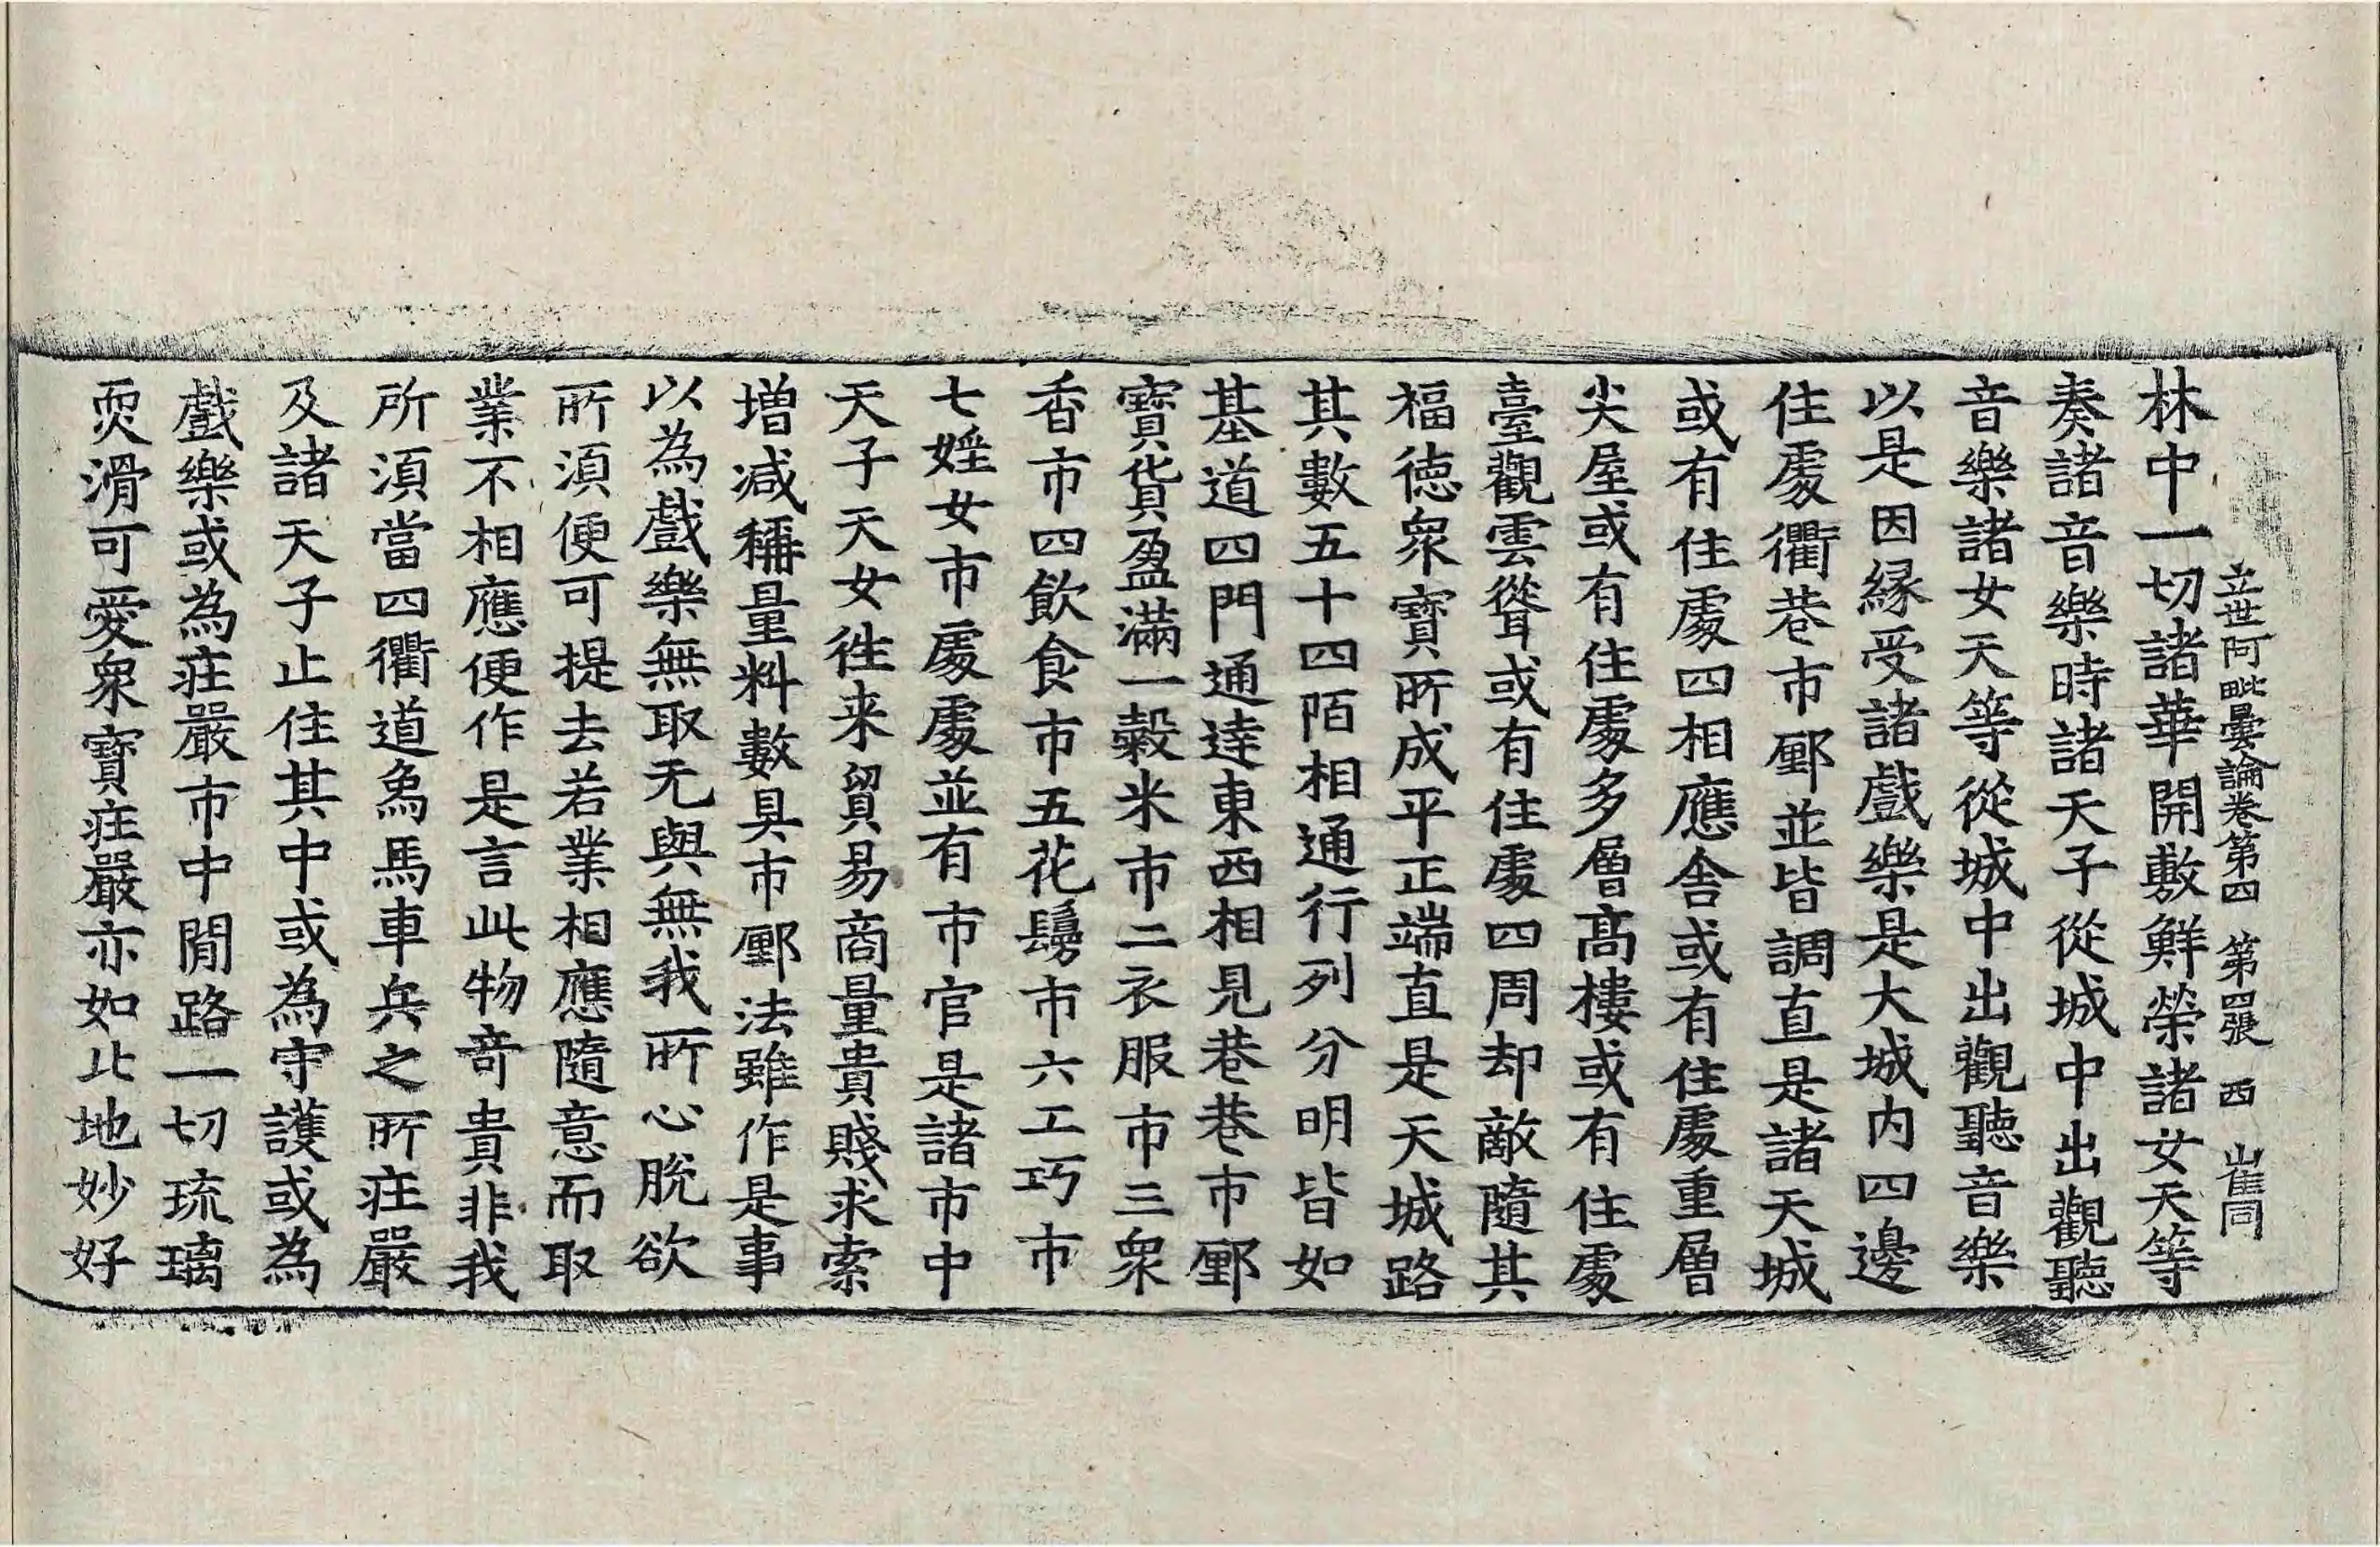 立世阿毗曇論卷第四 第四張 西 崔同
林中一切諸華開敷鮮榮諸女天等
奏諸音樂時諸天子從城中出觀聽
音樂諸女天等從城中出觀聽音樂
以是因緣受諸戲樂是大城內四邊
住處衢巷市𨞬並皆調直是諸天城
或有住處四相應舍或有住處重層
尖屋或有住處多層高樓或有住處
臺觀雲聳或有住處四周却敵隨其
福德衆寶所成平正端直是天城路
其數五十四陌相通行列分明皆如
基道四門通達東西相見巷巷市𨞬
寶貨盈滿一穀米市二衣服市三衆
香市四飲食市五花鬘市六工巧市
七婬女市處處並有市官是諸市中
天子天女往来貿易商量貴賤求索
增減稱量料數具市𨞬法雖作是事
以為戲樂無取无與無我所心脫欲
所湏便可提去若業相應隨意而取
業不相應便作是言此物奇貴非我
所湏當四衢道象馬車兵之所莊嚴
及諸天子止住其中或為守護或為
戲樂或為莊嚴市中閒路一切琉璃
耎滑可愛衆寶莊嚴亦如此地妙好